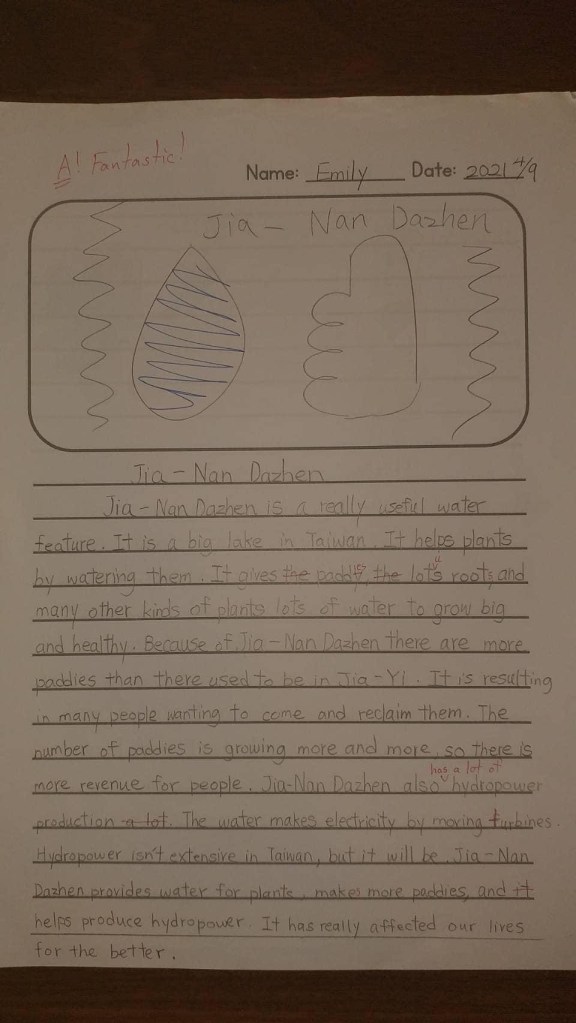 A! Fantastic!
Name: Emily Date: 2021 4/9
Jia - Nan Dazhen
Jia - Nan Dazhen
Jia - Nan Dazhen is a really useful water
feature. It is a big lake in Taiwan. It helps plants
by watering them. It gives the paddy, the lotus roots, and
many other kinds of plants lots of water to grow big
and healthy. Because of Jia - Nan Dazhen there are more
paddies than there used to be in Jia - Yi. It is resulting
in many people wanting to come and reclaim them. The
number of paddies is growing more and more, so there is
has a lot of
more revenue for people. Jia-Nan Dazhen also hydropower
production a lot. The water makes electricity by moving turbines.
Hydropower isn't extensive in Taiwan, but it will be. Jia - Nan
Dazhen provides water for plants, makes more paddies, and it
helps produce hydropower. It has really affected our lives
for the better.